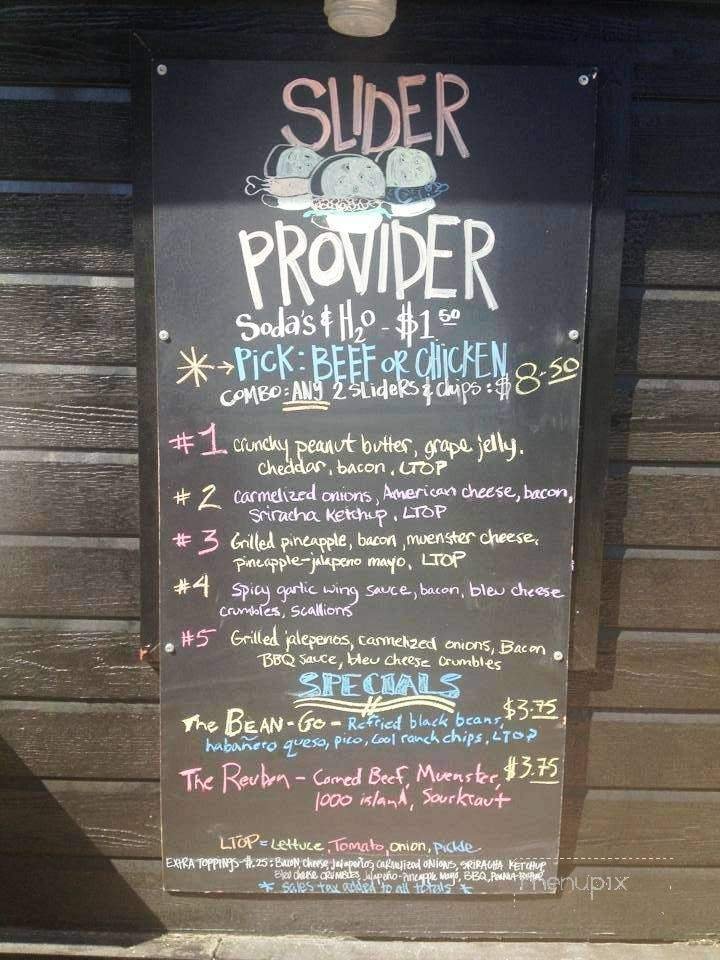 SLIDER
PROVIDER
Soda's & H2O - $1.50
*→ PICK: BEEF OR CHICKEN
COMBO: ANY 2 SLIDERS & chips: $8.50
#1 crunchy peanut butter, grape jelly.
cheddar, bacon, LTOP
#2 carmelized onions, American cheese, bacon,
Sriracha Ketchup, LTOP
#3 Grilled pineapple, bacon, muenster cheese,
pineapple-jalapeno mayo, LTOP
#4 Spicy garlic wing sauce, bacon, bleu cheese
crumbles, scallions
#5 Grilled jalepenos, carmelized onions, Bacon
BBQ sauce, bleu cheese crumbles
SPECIALS
The BEAN-Go - Refried black beans, $3.75
habañero queso, pico, Cool ranch chips, LTOP
The Reuben - Corned Beef, Muenster, $3.75
1000 island, Sourkraut
LTOP = Lettuce, Tomato, onion, pickle
EXTRA TOPPINGS-$.25: Bacon, cheese, jalapeños, carmelized onions, SRIRACHA KETCHUP
Bleu cheese CRUMBLES, jalapeño-pineapple mayo, BBQ,
* sales tax added to all totals *
menupix